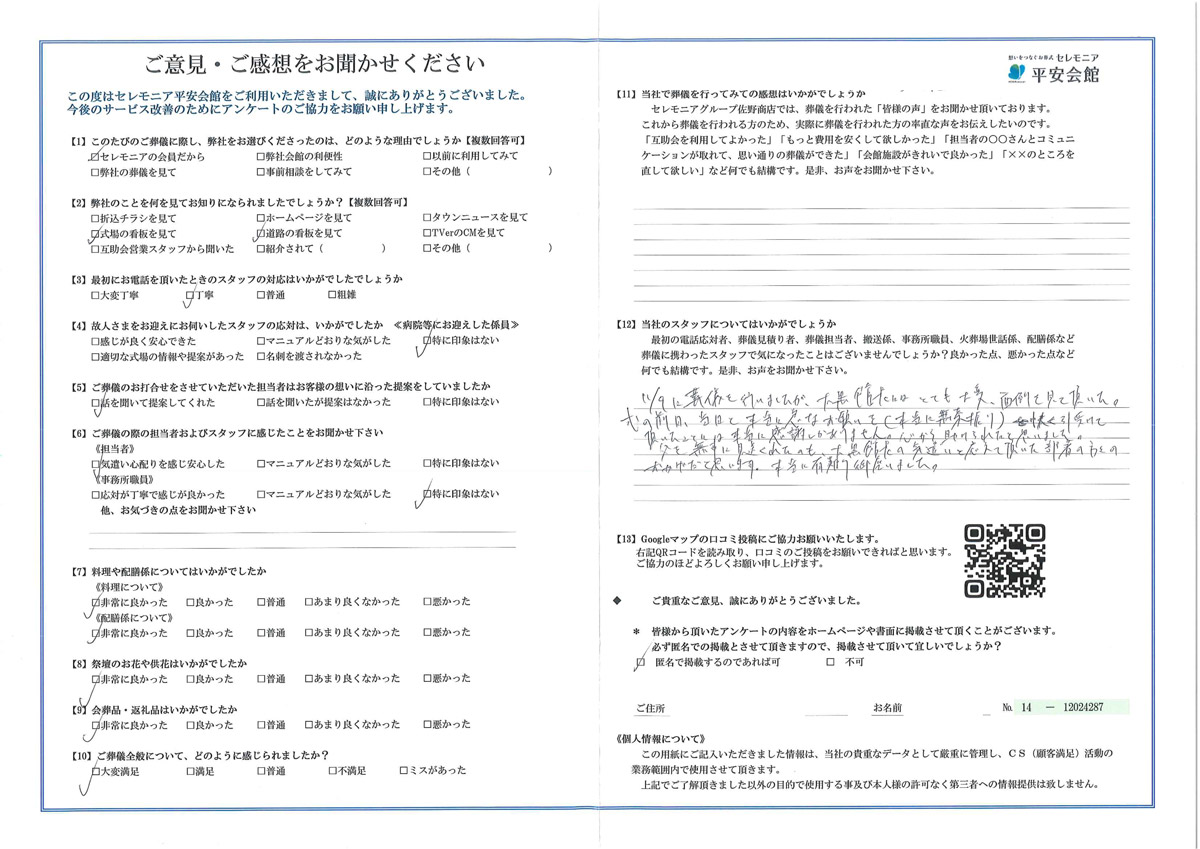 ご意見・ご感想をお聞かせください
この度はセレモニア平安会館をご利用いただきまして、誠にありがとうございました。
今後のサービス改善のためにアンケートのご協力をお願い申し上げます。
【1】このたびのご葬儀に際し、弊社をお選びくださったのは、どのような理由でしょうか【複数回答可】
☑セレモニアの会員だから □弊社会館の利便性 □以前に利用してみて
□弊社の葬儀を見て □事前相談をしてみて □その他（ ）
【2】弊社のことを何を見てお知りになられましたでしょうか？【複数回答可】
□折込チラシを見て □ホームページを見て □タウンニュースを見て
☑式場の看板を見て ☑道路の看板を見て □TVerのCMを見て
□互助会営業スタッフから聞いた □紹介されて（ ） □その他（ ）
【3】最初にお電話を頂いたときのスタッフの対応はいかがでしたでしょうか
□大変丁寧 ☑丁寧 □普通 □粗雑
【4】故人さまをお迎えにお伺いしたスタッフの応対は、いかがでしたか ≪病院等にお迎えした係員≫
□感じが良く安心できた □マニュアルどおりな気がした ☑特に印象はない
□適切な式場の情報や提案があった □名刺を渡されなかった
【5】ご葬儀のお打合せをさせていただいた担当者はお客様の想いに沿った提案をしていましたか
☑話を聞いて提案してくれた □話を聞いたが提案はなかった □特に印象はない
【6】ご葬儀の際の担当者およびスタッフに感じたことをお聞かせ下さい
《担当者》
☑気遣い心配りを感じ安心した □マニュアルどおりな気がした □特に印象はない
《事務所職員》
□応対が丁寧で感じが良かった □マニュアルどおりな気がした ☑特に印象はない
他、お気づきの点をお聞かせ下さい
【7】料理や配膳係についてはいかがでしたか
《料理について》
☑非常に良かった □良かった □普通 □あまり良くなかった □悪かった
《配膳係について》
☑非常に良かった □良かった □普通 □あまり良くなかった □悪かった
【8】祭壇のお花や供花はいかがでしたか
☑非常に良かった □良かった □普通 □あまり良くなかった □悪かった
【9】会葬品・返礼品はいかがでしたか
☑非常に良かった □良かった □普通 □あまり良くなかった □悪かった
【10】ご葬儀全般について、どのように感じられましたか？
☑大変満足 □満足 □普通 □不満足 □ミスがあった
想いをつなぐお葬式 セレモニア
平安会館
【11】当社で葬儀を行ってみての感想はいかがでしょうか
セレモニアグループ佐野商店では、葬儀を行われた「皆様の声」をお聞かせ頂いております。
これから葬儀を行われる方のため、実際に葬儀を行われた方の率直な声をお伝えしたいのです。
「互助会を利用してよかった」「もっと費用を安くして欲しかった」「担当者の〇〇さんとコミュニ
ケーションが取れて、思い通りの葬儀ができた」「会館施設がきれいで良かった」「××のところを
直して欲しい」など何でも結構です。是非、お声をお聞かせ下さい。
【12】当社のスタッフについてはいかがでしょうか
最初の電話応対者、葬儀見積り者、葬儀担当者、搬送係、事務所職員、火葬場世話係、配膳係など
葬儀に携わったスタッフで気になったことはございませんでしょうか？良かった点、悪かった点など
何でも結構です。是非、お声をお聞かせ下さい。
11/9に葬儀を行いましたが、大黒館長にはとても大変、面倒を見て頂いた。
式の前日、当日と本当に急なお願いを（本当に無茶振り）快く引受けて
頂いたことには本当に感謝しかありません。心から助けられたと思いました。
父を無事に見送くれたのも、大黒館長の気遣いと応えて頂いた業者の方々の
おかげだと思います。本当に有難う御座いました。
【13】Googleマップの口コミ投稿にご協力お願いいたします。
右記QRコードを読み取り、口コミのご投稿をお願いできればと思います。
ご協力のほどよろしくお願い申し上げます。
❖ ご貴重なご意見、誠にありがとうございました。
＊ 皆様から頂いたアンケートの内容をホームページや書面に掲載させて頂くことがございます。
必ず匿名での掲載とさせて頂きますので、掲載させて頂いて宜しいでしょうか？
☑ 匿名で掲載するのであれば可 □ 不可
ご住所 お名前 № 14 － 12024287
《個人情報について》
この用紙にご記入いただきました情報は、当社の貴重なデータとして厳重に管理し、ＣＳ（顧客満足）活動の
業務範囲内で使用させて頂きます。
上記でご了解頂きました以外の目的で使用する事及び本人様の許可なく第三者への情報提供は致しません。